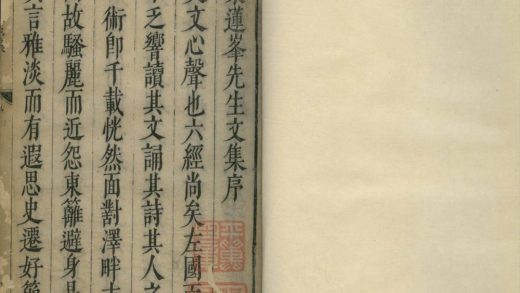 蓮峯先生文集序
文心聲也六經尚矣左國
乏響讀其文誦其詩其人之
術即千載恍然面對澤畔
故騷麗而近怨東籬避身
言雅淡而有遐思史遷好